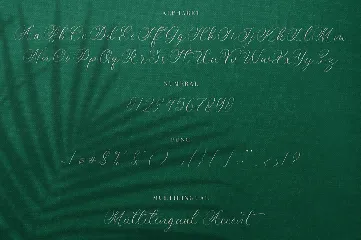 ALPHABET
Aa Bb Cc Dd Ee Ff Gg Hh Ii Jj Kk Ll Mm
Nn Oo Pp Qq Rr Ss Tt Uu Vv Ww Xx Yy Zz
NUMERAL
PUNC
MULTILINGUAL
Multilingual Accent